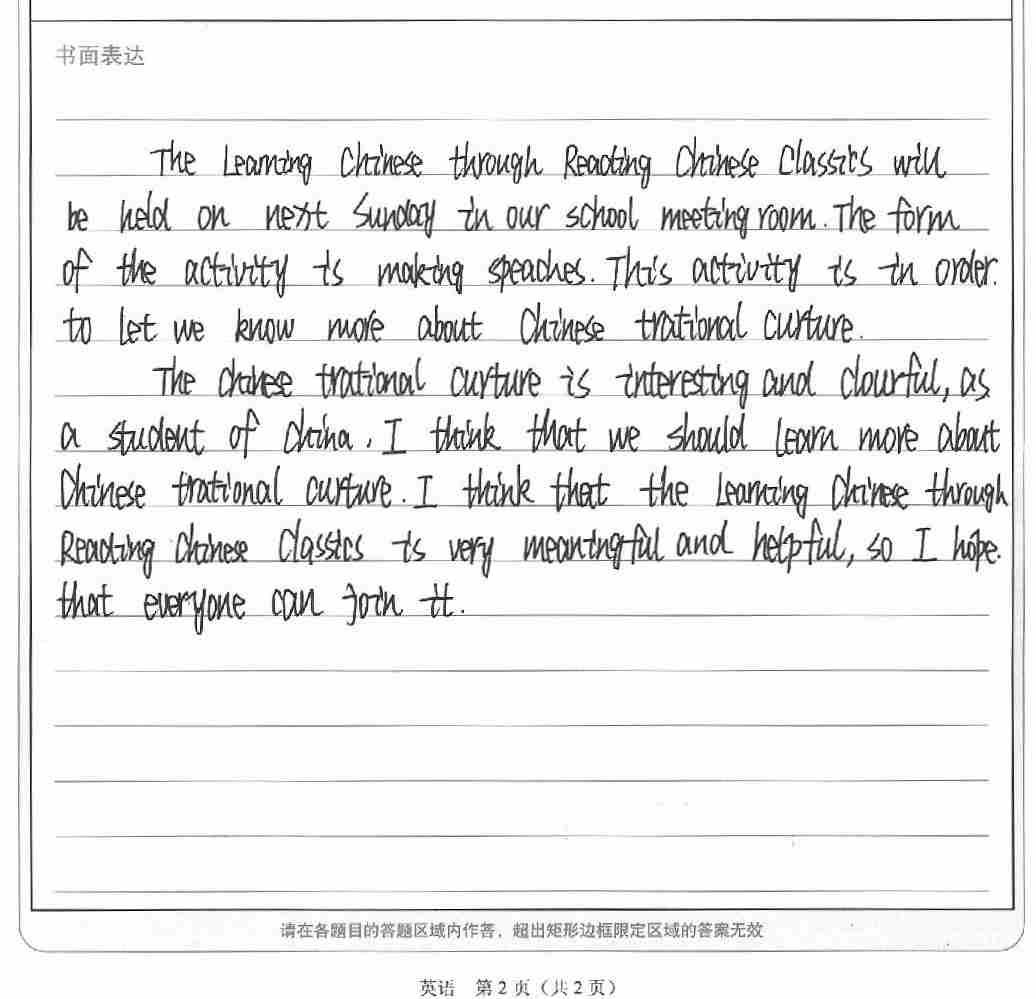 书面表达
The Learning Chinese through Reading Chinese Classics will
be held on next Sunday in our school meeting room. The form
of the activity is making speaches. This activity is in order.
to let we know more about Chinese trational curture.
The chinese trational curture is interesting and clourful, as
a student of china, I think that we should learn more about
Chinese trational curture. I think that the Learning Chinese through
Reading Chinese Classics is very meaningful and helpful, so I hope.
that everyone can join it.
请在各题目的答题区域内作答，超出矩形边框限定区域的答案无效
英语 第 2 页（共 2 页）